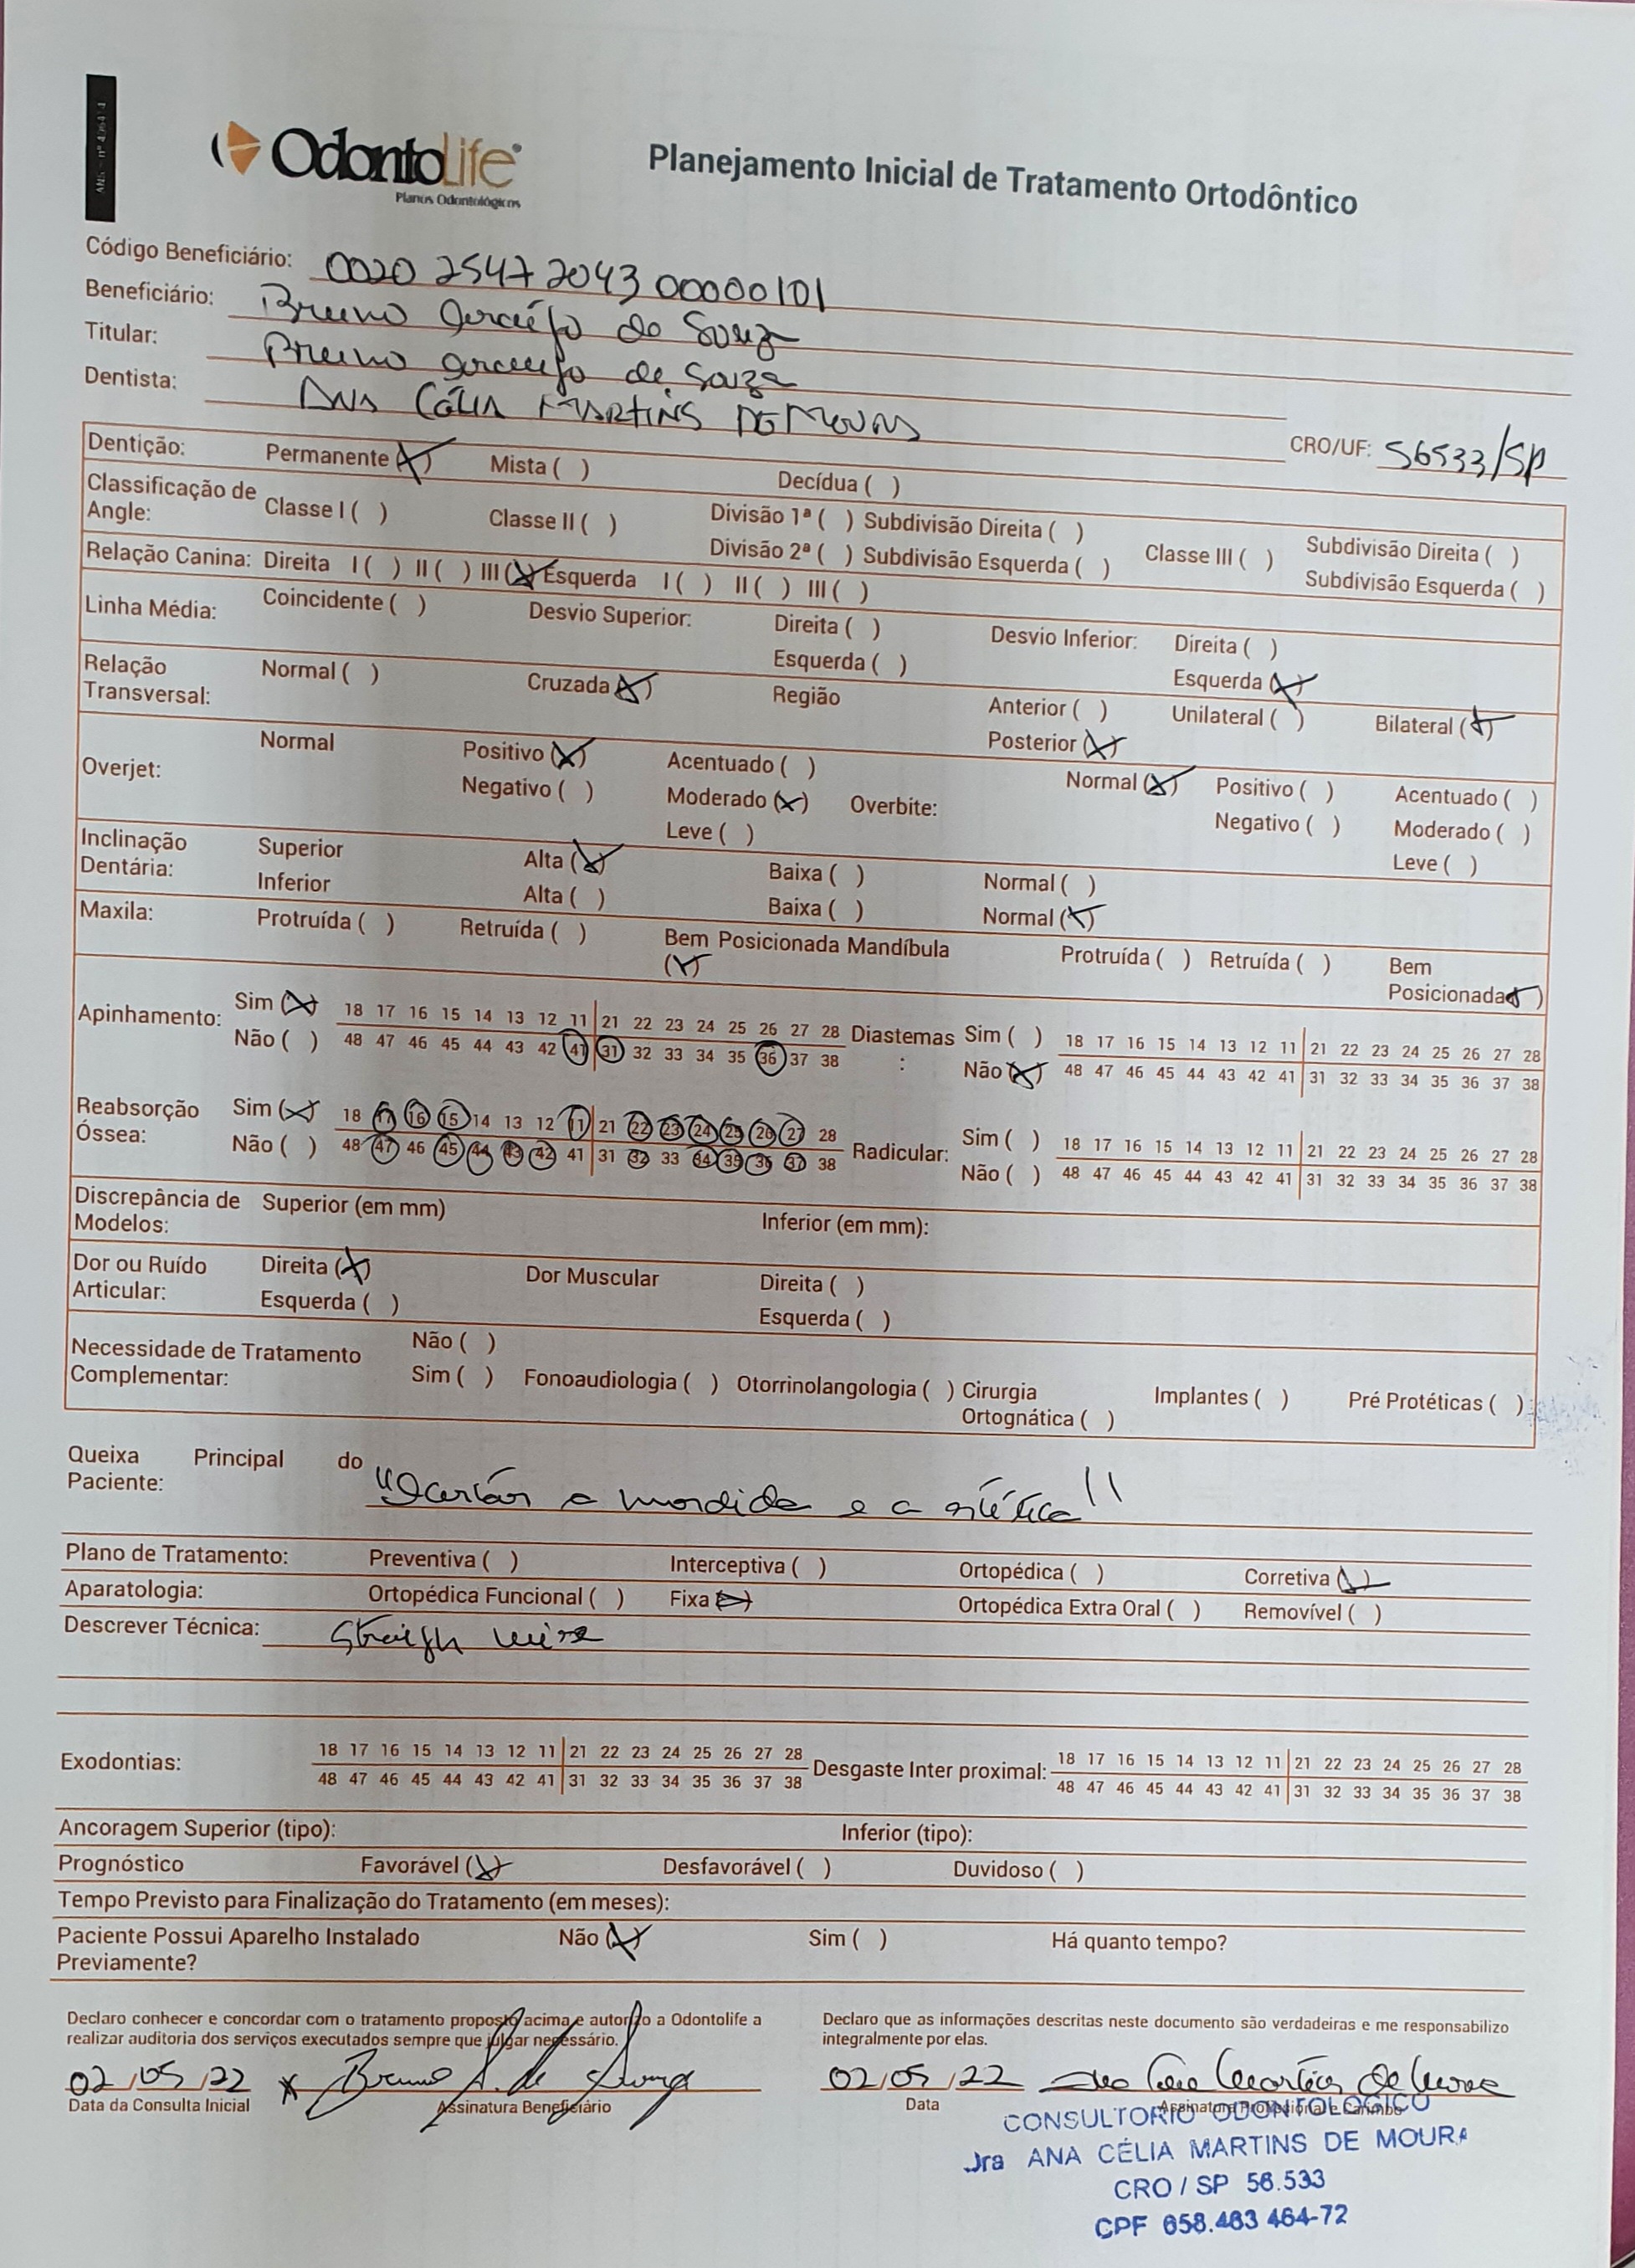 OdontoLife
Planos Odontológicos
Planejamento Inicial de Tratamento Ortodôntico
Código Beneficiário: 0020 2547 2043 00000101
Beneficiário: Bruno de Souza
Titular: Bruno de Souza
Dentista: Ana Célia Martins de Moura CRO/UF: 56533/SP
Dentição: Permanente (X) Mista ( ) Decídua ( )
Classificação de Angle: Classe I ( ) Classe II ( ) Divisão 1ª ( ) Subdivisão Direita ( ) Classe III ( ) Subdivisão Direita ( )
Divisão 2ª ( ) Subdivisão Esquerda ( ) Subdivisão Esquerda ( )
Relação Canina: Direita I ( ) II ( ) III (X) Esquerda I ( ) II ( ) III ( )
Linha Média: Coincidente ( ) Desvio Superior: Direita ( ) Desvio Inferior: Direita ( )
Esquerda ( ) Esquerda (X)
Relação Transversal: Normal ( ) Cruzada (X) Região Anterior ( ) Unilateral ( ) Bilateral (X)
Posterior (X)
Overjet: Normal Positivo (X) Acentuado ( ) Overbite: Normal (X) Positivo ( ) Acentuado ( )
Negativo ( ) Moderado (X) Negativo ( ) Moderado ( )
Leve ( ) Leve ( )
Inclinação Dentária: Superior Alta (X) Baixa ( ) Normal ( )
Inferior Alta ( ) Baixa ( ) Normal (X)
Maxila: Protruída ( ) Retruída ( ) Bem Posicionada (X) Mandíbula Protruída ( ) Retruída ( ) Bem Posicionada (X)
Apinhamento: Sim (X) 18 17 16 15 14 13 12 11 21 22 23 24 25 26 27 28 Diastemas : Sim ( ) 18 17 16 15 14 13 12 11 21 22 23 24 25 26 27 28
Não ( ) 48 47 46 45 44 43 42 41 31 32 33 34 35 36 37 38 Não (X) 48 47 46 45 44 43 42 41 31 32 33 34 35 36 37 38
Reabsorção Óssea: Sim (X) 18 17 16 15 14 13 12 11 21 22 23 24 25 26 27 28 Radicular: Sim ( ) 18 17 16 15 14 13 12 11 21 22 23 24 25 26 27 28
Não ( ) 48 47 46 45 44 43 42 41 31 32 33 34 35 36 37 38 Não ( ) 48 47 46 45 44 43 42 41 31 32 33 34 35 36 37 38
Discrepância de Modelos: Superior (em mm) Inferior (em mm):
Dor ou Ruído Articular: Direita (X) Dor Muscular Direita ( )
Esquerda ( ) Esquerda ( )
Necessidade de Tratamento Complementar: Não ( )
Sim ( ) Fonoaudiologia ( ) Otorrinolangologia ( ) Cirurgia Ortognática ( ) Implantes ( ) Pré Protéticas ( )
Queixa Principal do Paciente: a mordida e a estética"
Plano de Tratamento: Preventiva ( ) Interceptiva ( ) Ortopédica ( ) Corretiva (X)
Aparatologia: Ortopédica Funcional ( ) Fixa (X) Ortopédica Extra Oral ( ) Removível ( )
Descrever Técnica: Straigh wire
Exodontias: 18 17 16 15 14 13 12 11 21 22 23 24 25 26 27 28 Desgaste Inter proximal: 18 17 16 15 14 13 12 11 21 22 23 24 25 26 27 28
48 47 46 45 44 43 42 41 31 32 33 34 35 36 37 38 48 47 46 45 44 43 42 41 31 32 33 34 35 36 37 38
Ancoragem Superior (tipo): Inferior (tipo):
Prognóstico Favorável (X) Desfavorável ( ) Duvidoso ( )
Tempo Previsto para Finalização do Tratamento (em meses):
Paciente Possui Aparelho Instalado Previamente? Não (X) Sim ( ) Há quanto tempo?
Declaro conhecer e concordar com o tratamento proposto acima e autorizo a Odontolife a
realizar auditoria dos serviços executados sempre que julgar necessário.
02/05/22 X Bruno A. de Souza
Data da Consulta Inicial Assinatura Beneficiário
Declaro que as informações descritas neste documento são verdadeiras e me responsabilizo
integralmente por elas.
02/05/22 Ana Célia Martins de Moura
Data Assinatura Profissional e Carimbo
CONSULTORIO ODONTOLÓGICO
Dra ANA CÉLIA MARTINS DE MOURA
CRO / SP 56.533
CPF 658.463 464-72